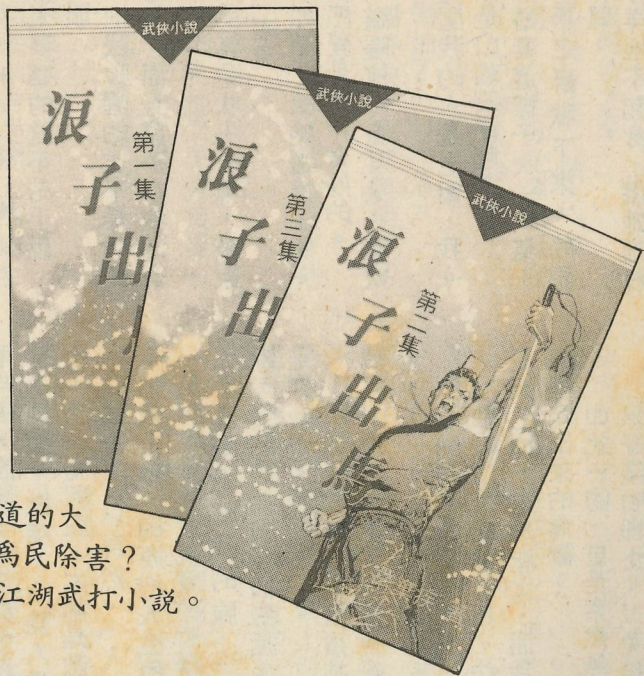 武俠小說
浪子出
第一集
武俠小說
浪子出
第三集
武俠小說
浪子出馬
第二集
著
道的大
爲民除害？
江湖武打小說。